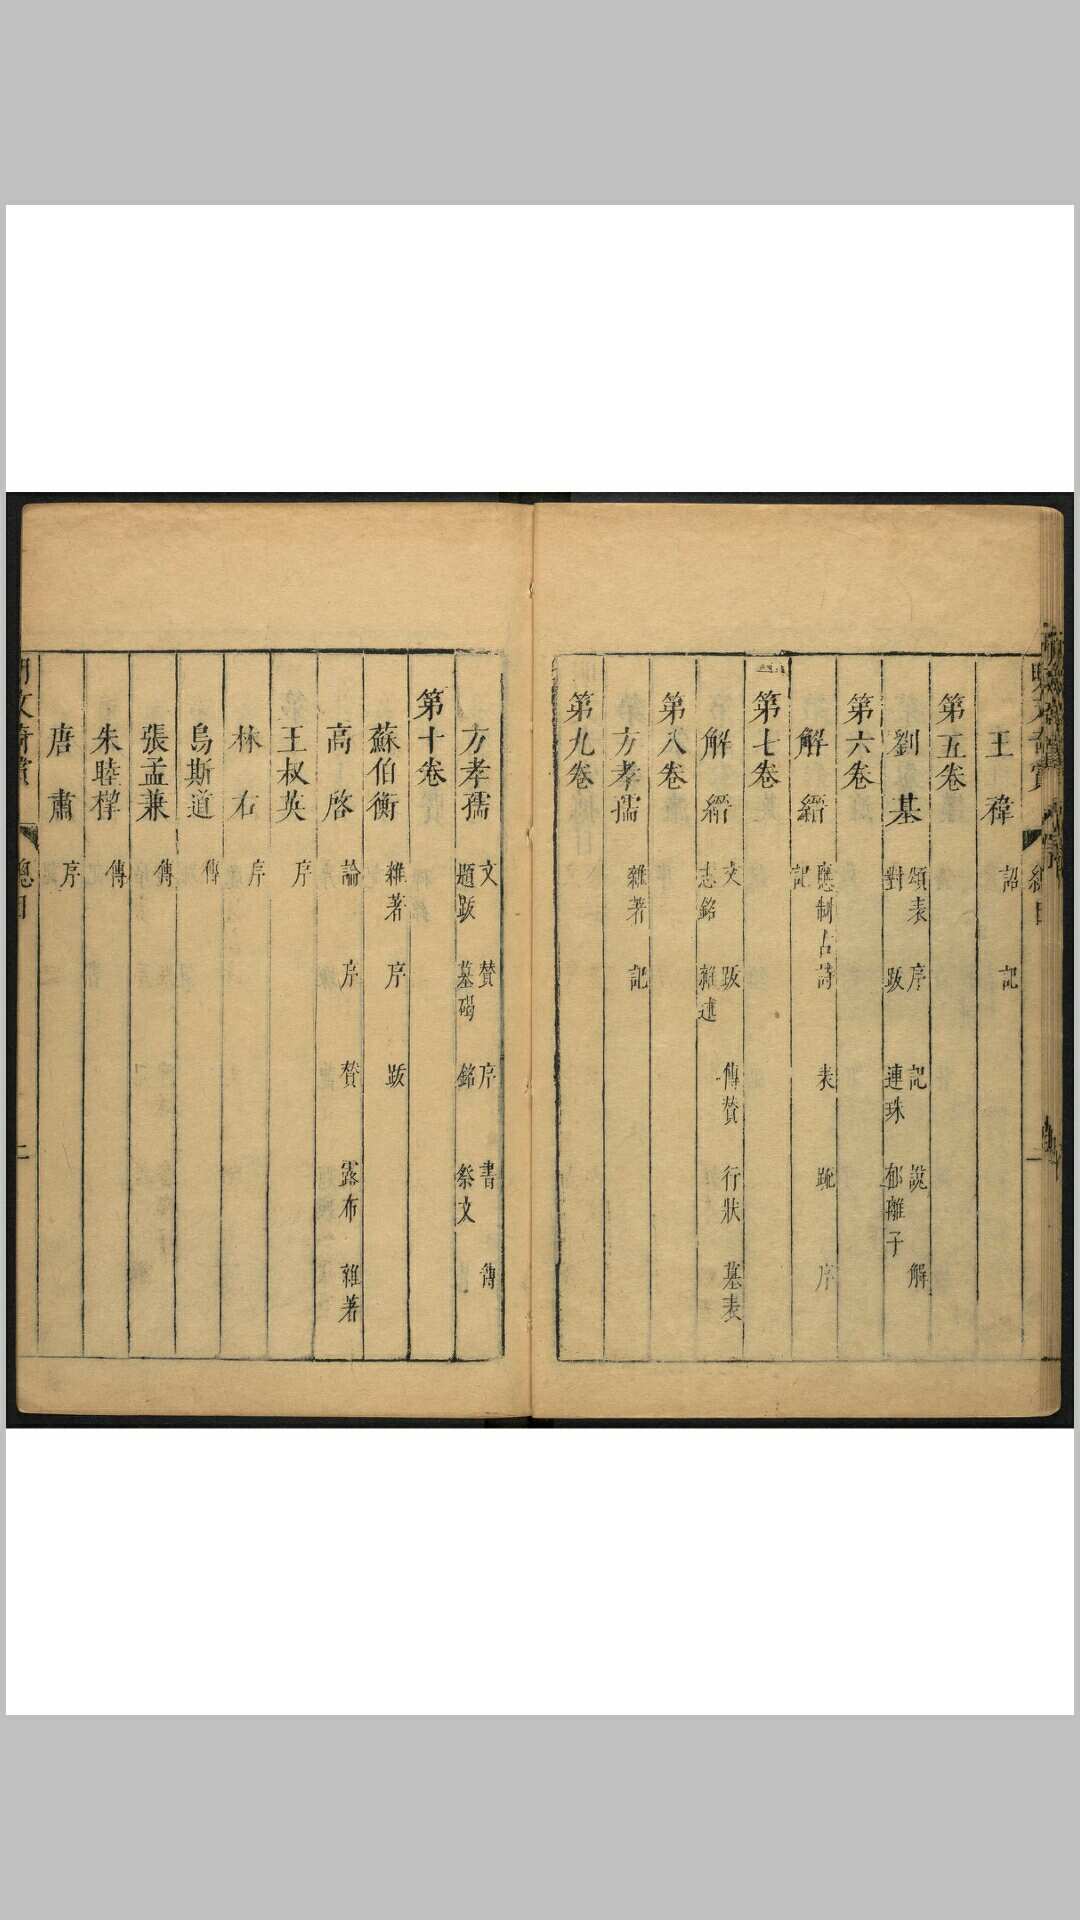 王禕 詔 記
第五卷
劉基 頌表 序 記 說 解
對 跋 連珠 郁離子
第六卷
解縉 應制古詩 表 疏 序
記
第七卷
解縉 文 跋 傳贊 行狀 墓表
志銘 雜述
第八卷
方孝孺 雜著 記
第九卷
方孝孺 文 贊 序 書 傳
題跋 墓碣 銘 祭文
第十卷
蘇伯衡 雜著 序 跋
高啓 論 序 贊 露布 雜著
王叔英 序
林右 序
烏斯道 傳
張孟兼 傳
朱睦㮮 傳
唐肅 序